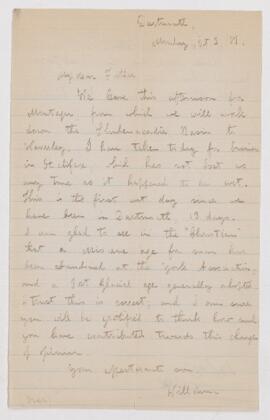 Dartmouth,
Monday, Oct 3, 
My dear Father
We leave this afternoon for
Montague from which we will work
down the Shubenacadie Basin to
Waverley. I have taken to-day for business
in Halifax, but has not lost us
any time as it happened to be wet.
This is the first wet day since we
have been in Dartmouth, 13 days.
I am glad to see in the
that a Miocene age for man has
been abandoned at the York Association,
and a Post Glacial age generally adopted.
I trust this is correct, and I am sure
you will be gratified to think how much
you have contributed towards this change
of opinion.
Your affectionate son
William